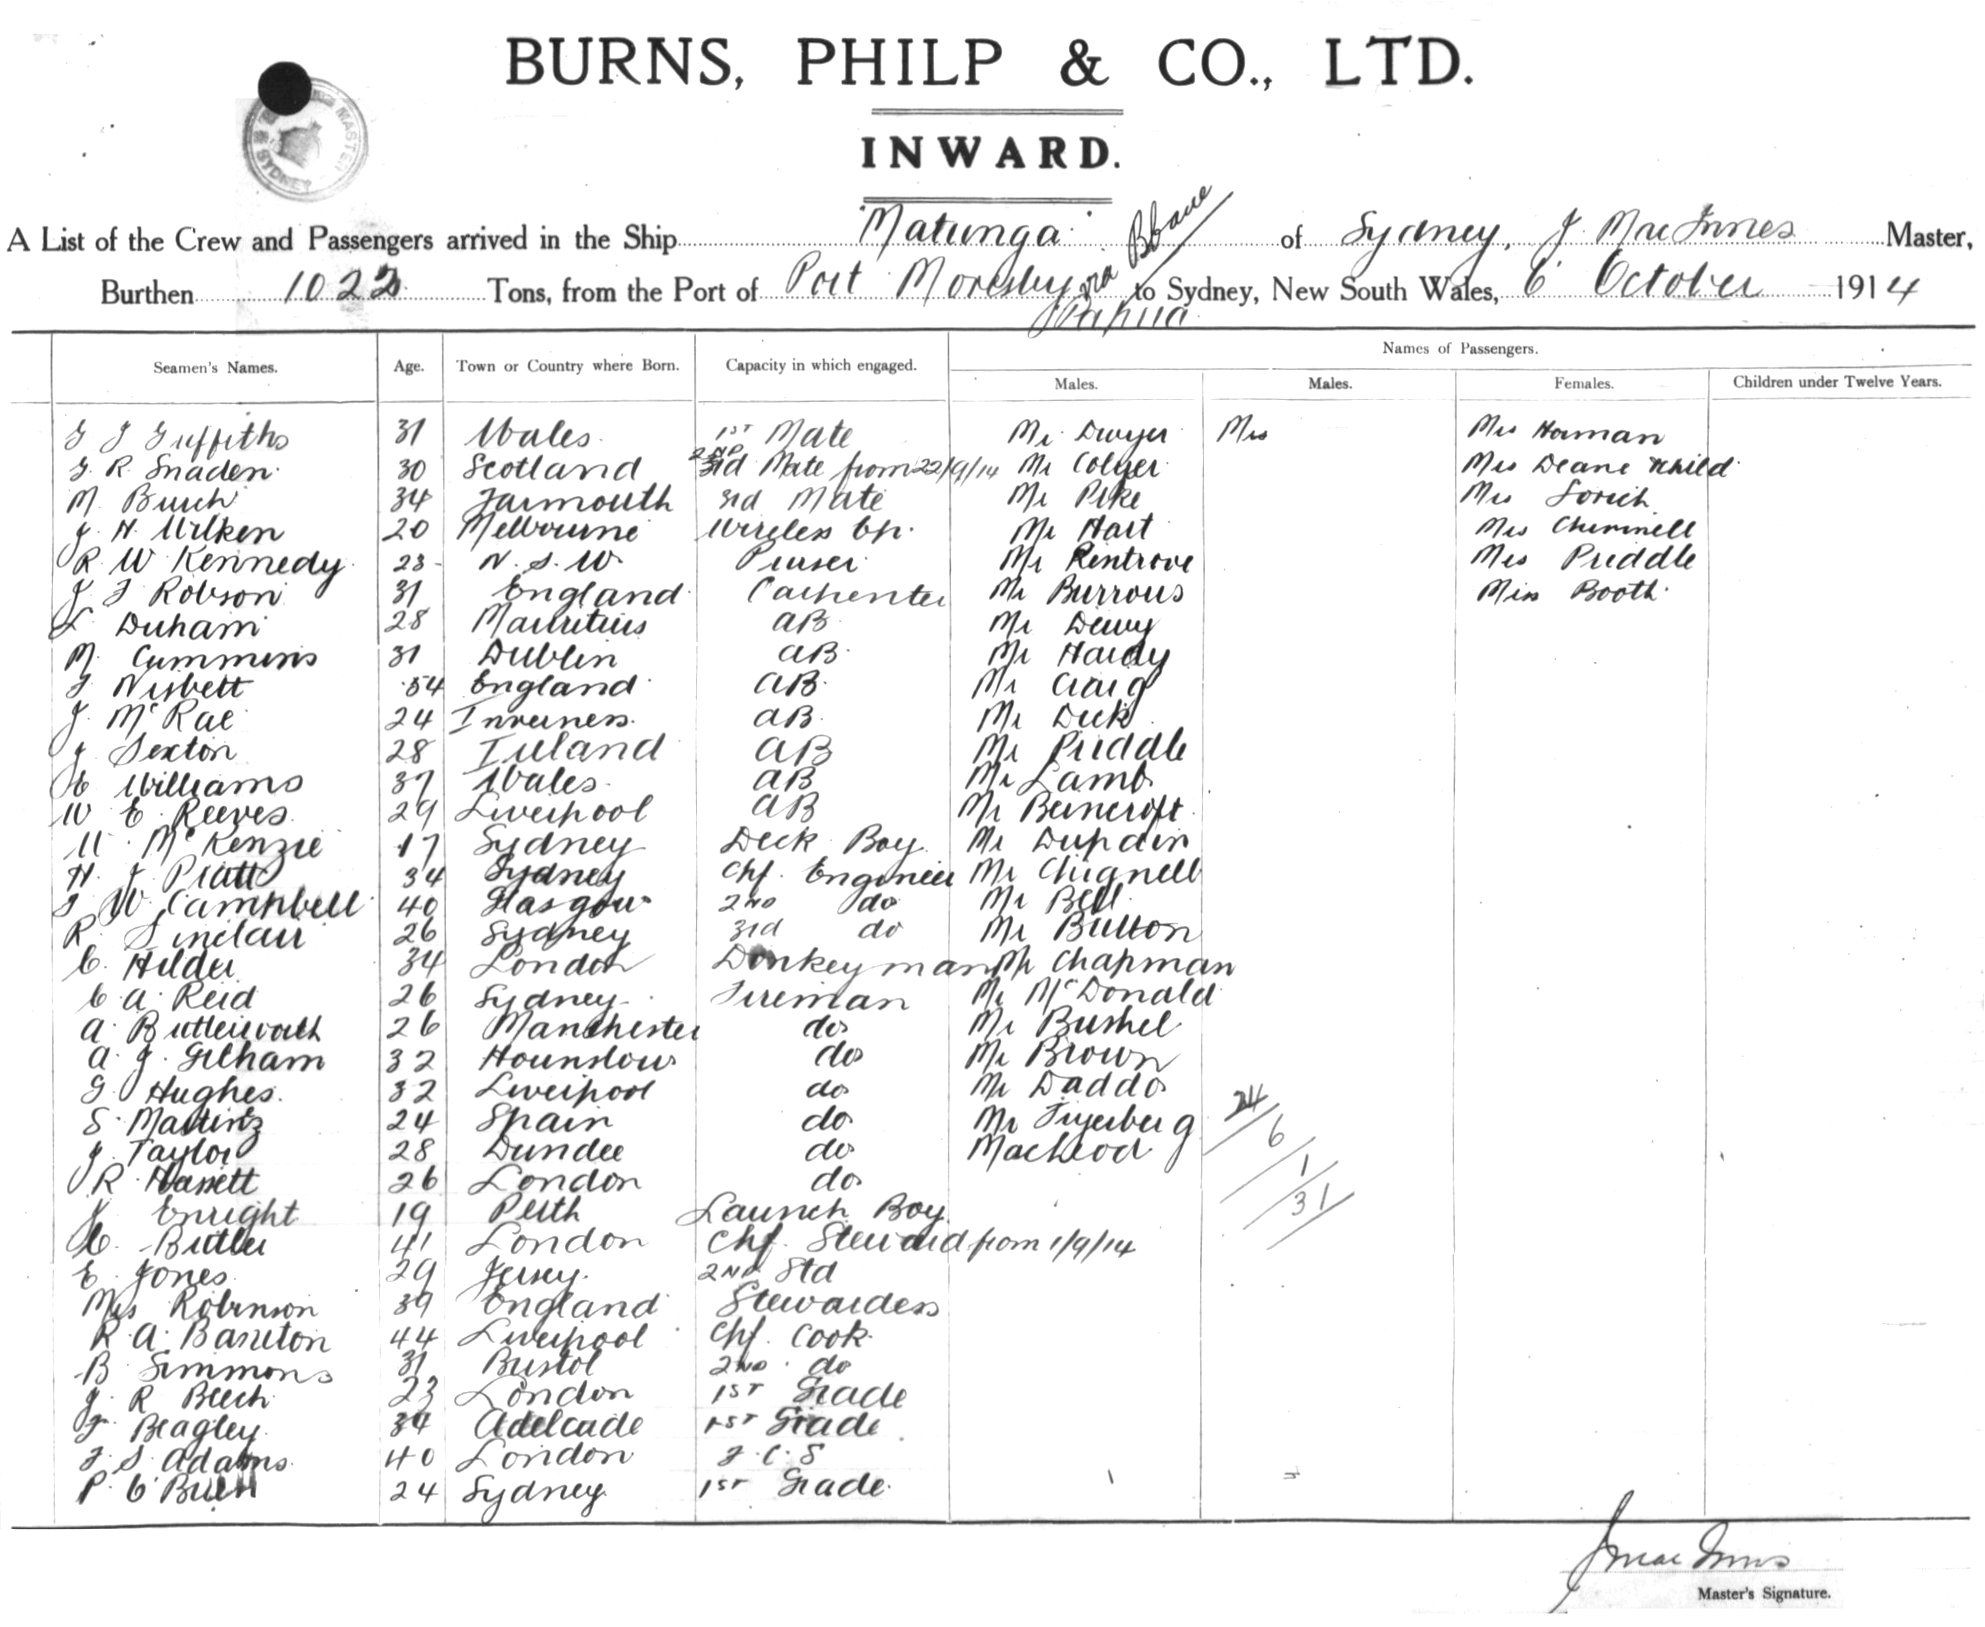 BURNS, PHILP & CO., LTD.
INWARD.
A List of the Crew and Passengers arrived in the Ship "Matunga" of Sydney, J. MacInnes Master,
Burthen 1022 Tons, from the Port of Port Moresby via Bbane to Sydney, New South Wales, 6 October 1914
Papua
Seamen's Names. Age. Town or Country where Born. Capacity in which engaged. Names of Passengers.
Males. Males. Females. Children under Twelve Years.
Griffiths 31 Wales 1st Mate Mr Dwyer Mrs Mrs Homan
R. Snaden 30 Scotland 2nd 3rd Mate from 22/9/14 Mr Colyer Mrs Deane & child
M. Burch 34 Yarmouth 3rd Mate Mr Pike Mrs
J. H. Wilken 20 Melbourne Wireless Op. Mr Hart Mrs
R W Kennedy 23 N. S. W. Purser Mr Rentrove Mrs Priddle
J. F Robson 31 England Carpenter Mr Burrows Miss Booth
L Duham 28 Mauritius AB Mr Dewy
M. Cummins 31 Dublin AB Mr Hardy
Nisbett 54 England AB Mr Craig
J. McRae 24 Inverness AB Mr Dick
J Sexton 28 Ireland AB Mr Priddle
Williams 37 Wales AB Mr Lamb
W E Reeves 29 Liverpool AB Mr Bencroft
McKenzie 17 Sydney Deck Boy Mr Dupain
H. J Pratt 34 Sydney Chf. Engineer Mr Chignell
W. Campbell 40 Glasgow 2nd do Mr Bell
R. Sinclair 26 Sydney 3rd do Mr Button
C. Hilder 34 London Donkeyman Mr Chapman
C. A. Reid 26 Sydney Fireman Mr McDonald
A. Butterworth 26 Manchester do Mr Bushel
A. J. Gilham 32 Hounslow do Mr Brown
G Hughes 32 Liverpool do Mr Daddo
S. Martinz 24 Spain do Mr
J. Taylor 28 Dundee do MacLeod
R. Hassett 26 London do
J Enright 19 Perth Launch Boy
Butler 41 London Chf. Steward from 1/9/14
E. Jones 29 Jersey 2nd Std
Mrs Robinson 39 England Stewardess
R. A. Barreton 44 Liverpool Chf. Cook
B Simmons 31 Bristol 2nd do
J. R Beech 23 London 1st Grade
Beagley 34 Adelaide 1st Grade
F. S. Adams 40 London F. C. S
P. O'Brien 24 Sydney 1st Grade
24
6
1
31
J MacInnes
Master's Signature.